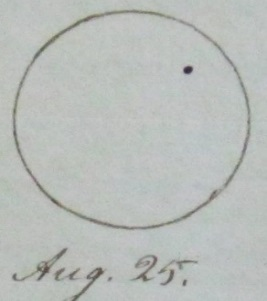 Aug. 25.